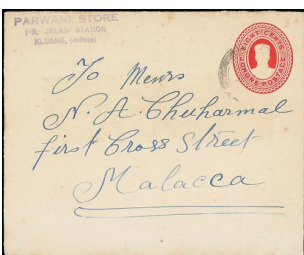 PARWANI STORE
JALAN STATION
KLUANG, (Johore)
EIGHT CENTS
POSTAGE
To Messrs
N. A Chuharmal
first Cross Street
Malacca